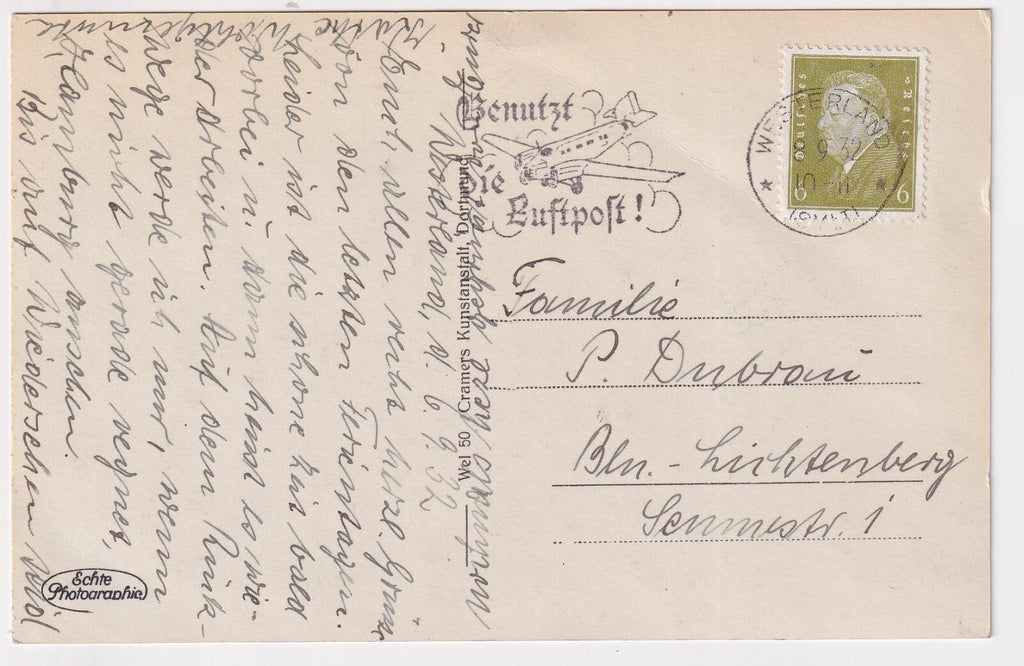 Westerland, d. 6. 9. 32
Euch allen recht herzl. Grüße
von den letzten Ferientagen.
Leider ist die schöne Zeit bald
vorbei u. dann heisst es wie-
der arbeiten. Auf dem Rück-
wege werde ich nur, wenn
es nicht gerade regnet,
Hamburg ansehen.
Bis auf Wiedersehen
Benutzt
die
Luftpost!
Deutsches Reich
6 6
WESTERLAND
9.32
(SYLT)
Familie
P. Dubrau
Bln.-Lichtenberg
Sennestr. 1
Wel 50 Cramers Kunstanstalt, Dortmund
Echte
Photographie